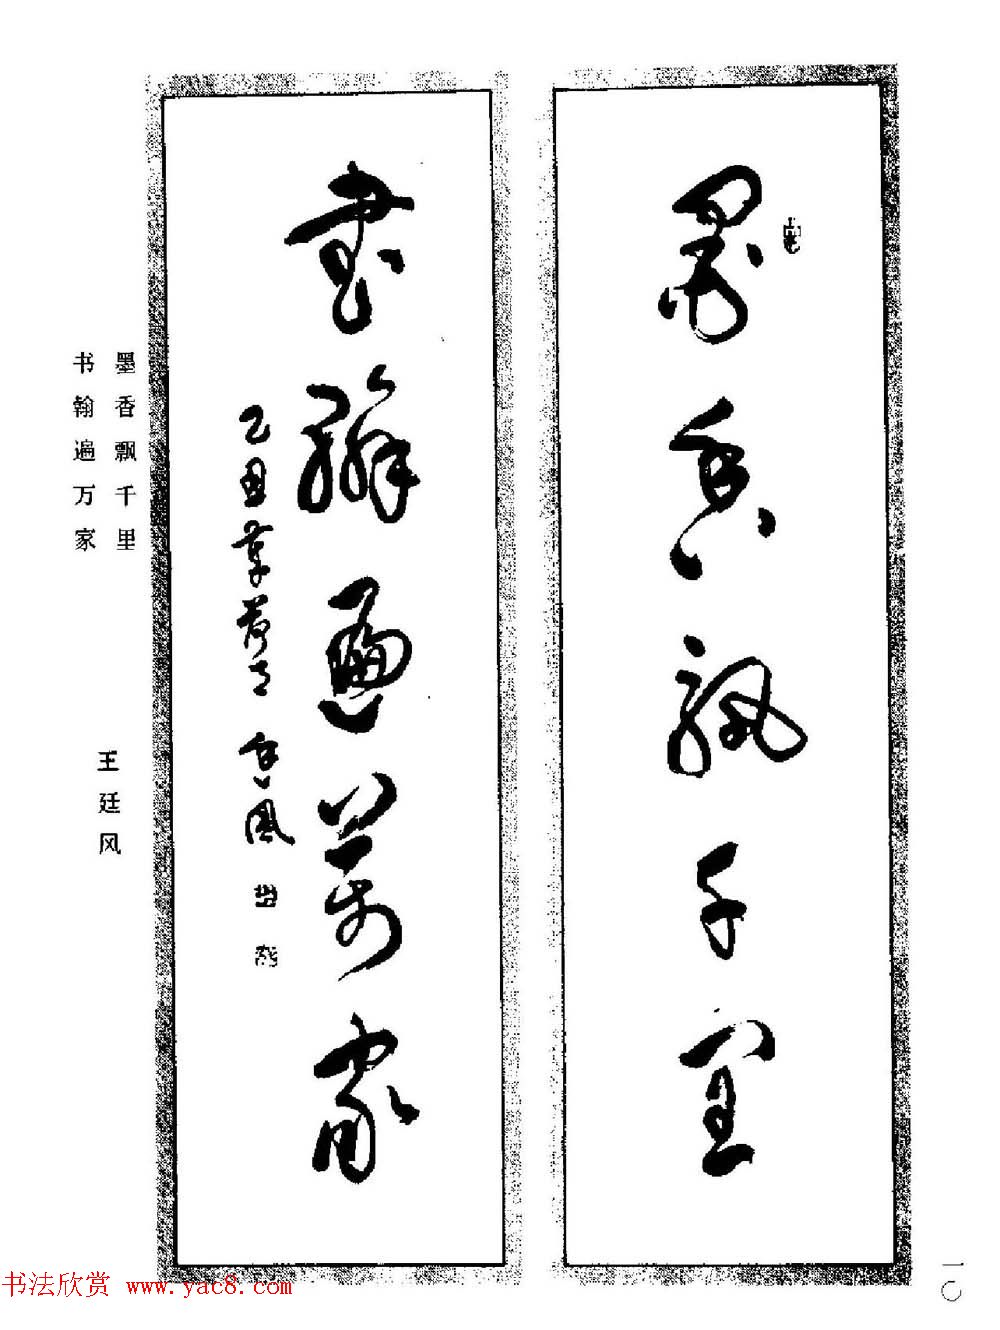 墨香飘千里
書翰遍萬家
乙丑
墨香飘千里
书翰遍万家
王廷风
一〇
书法欣赏 www.yac8.com